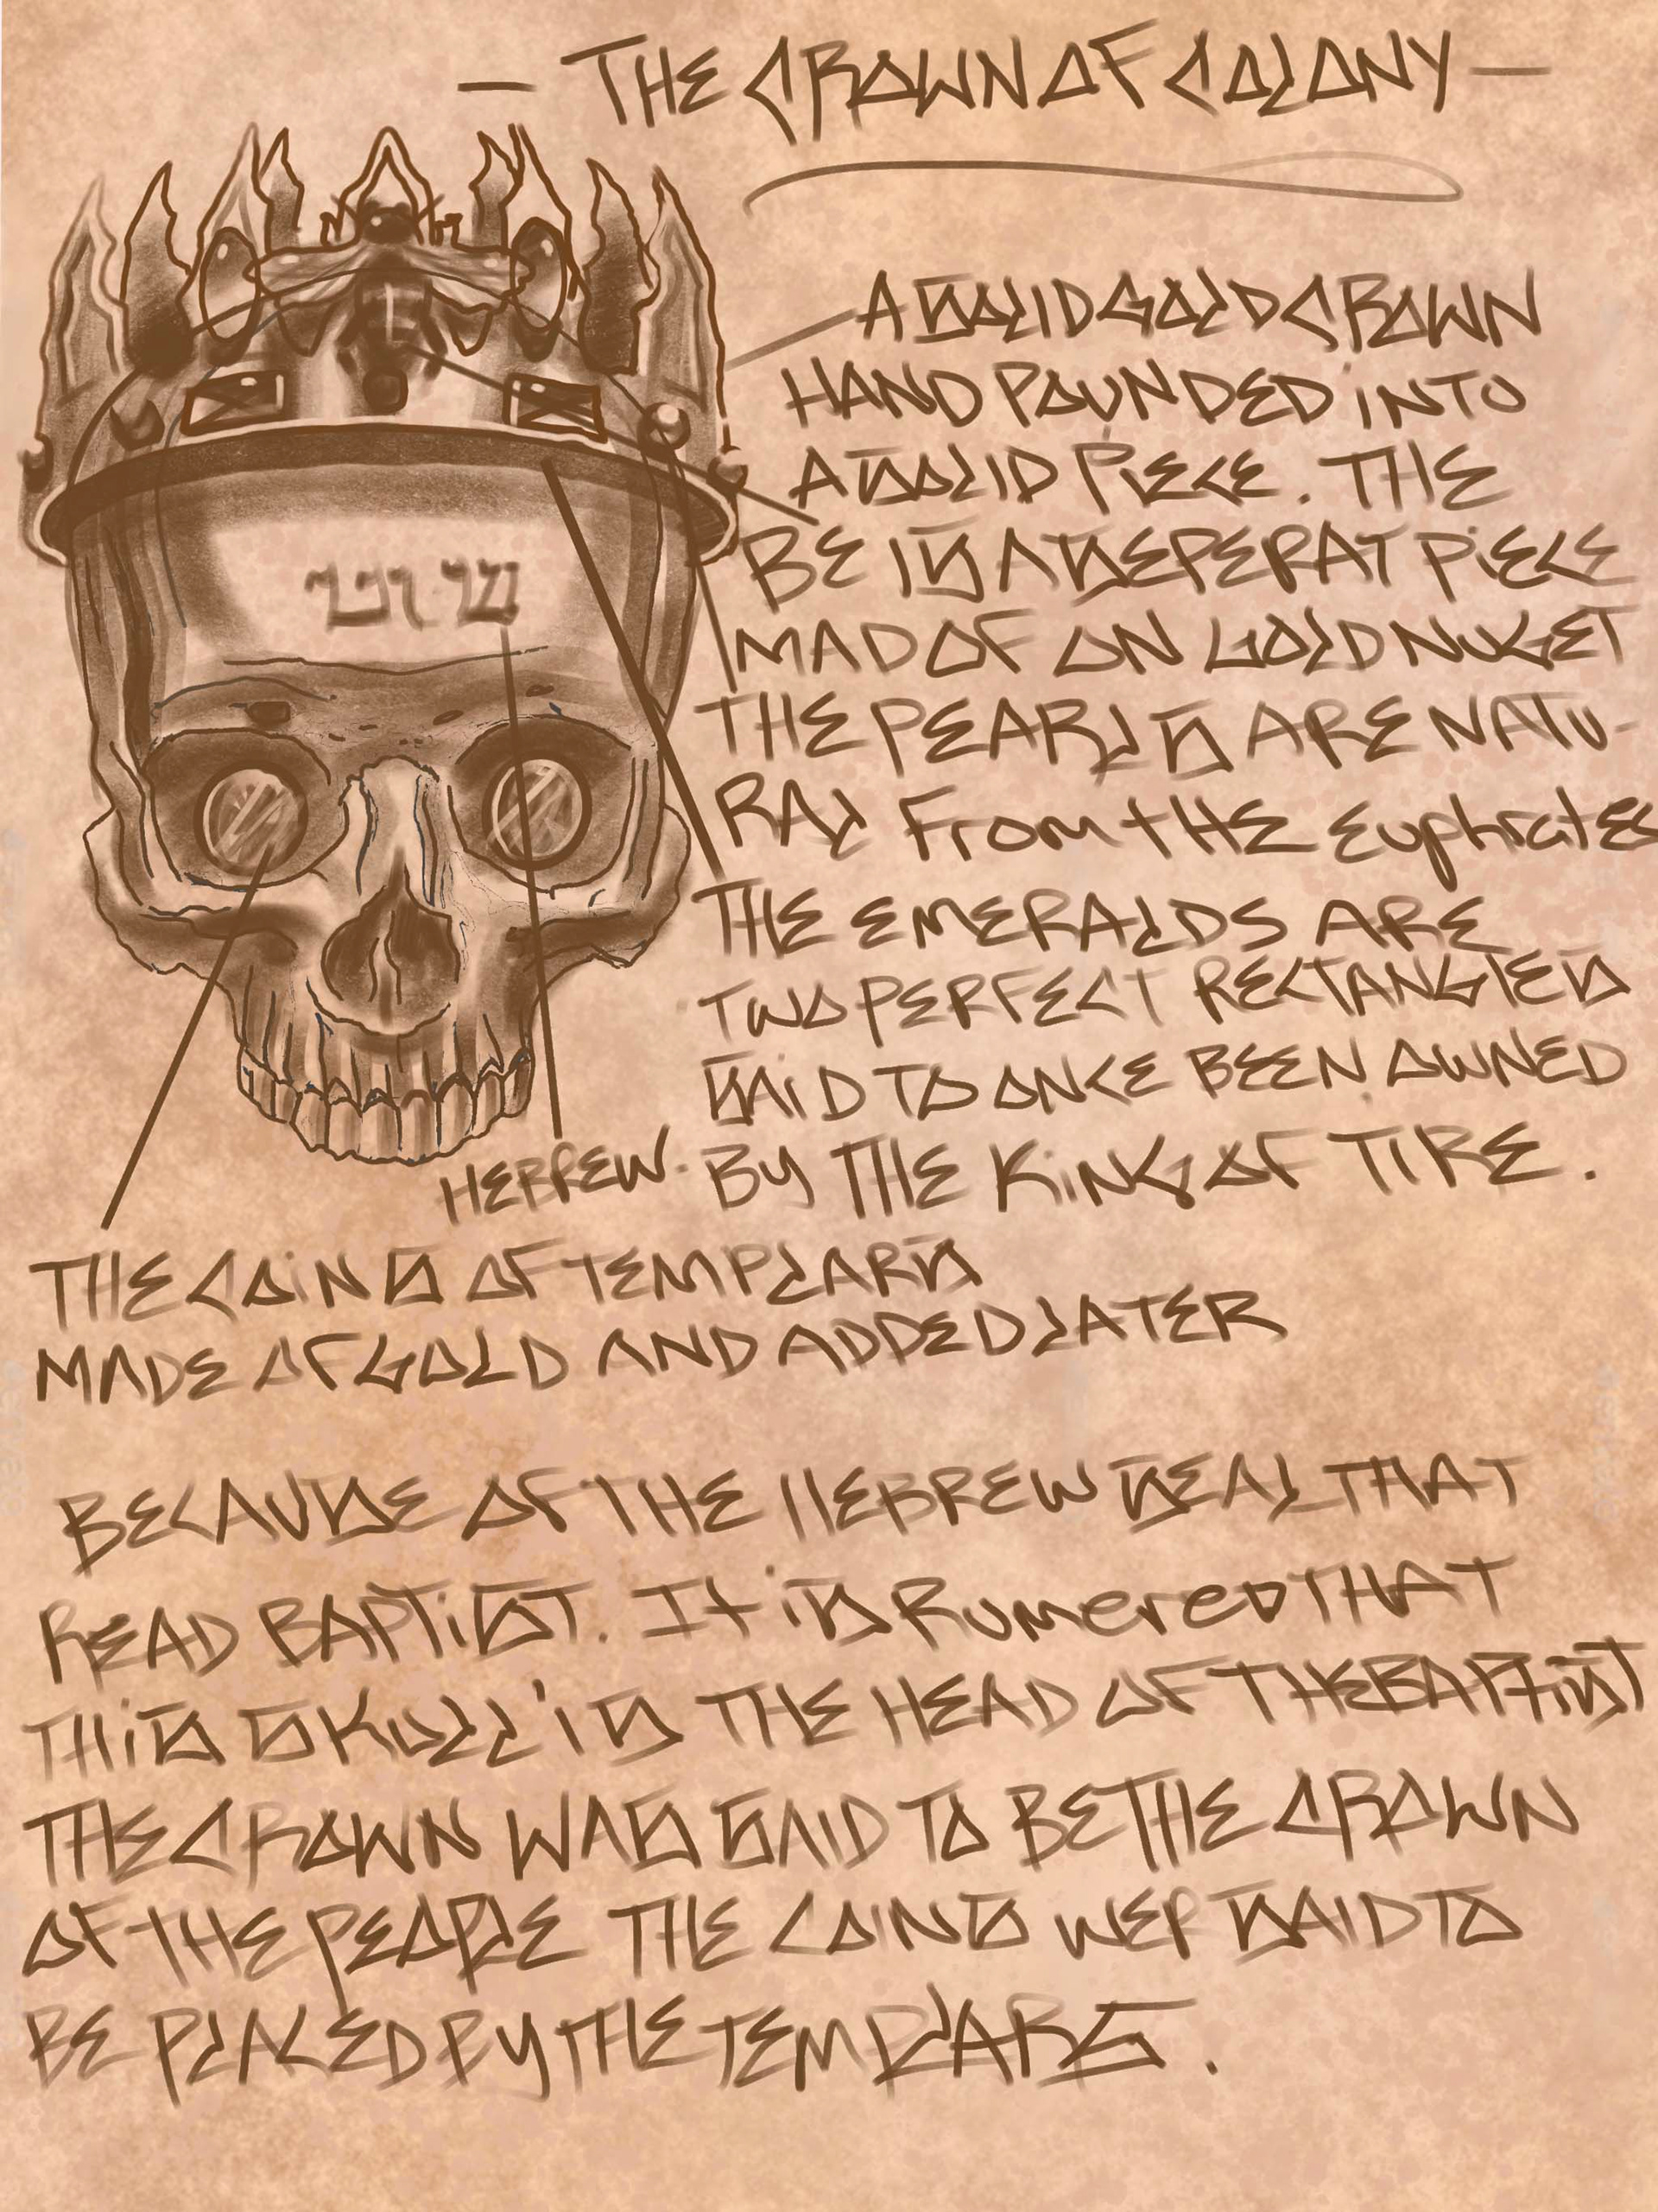 — THE CROWN OF COLONY —
A SOLID GOLD CROWN
HAND POUNDED INTO
A SOLID PIECE. THE
BE IS A SEPERAT PIECE
MAD OF ON GOLD NUGET
THE PEARLS ARE NATU-
RAL From tHE Euphrates
THE EMERALDS ARE
TWO PERFECT RECTANGLES
SAID TO ONCE BEEN OWNED
HEBREW. BY THE KING OF TIRE.
THE COINS OF TEMPLARS
MADE OF GOLD AND ADDED LATER
BECAUSE OF THE HEBREW SEAL THAT
READ BAPTIST. It is RumereD THAT
THIS SKULL IS THE HEAD OF THE BAPTIST
THE CROWN WAS SAID TO BE THE CROWN
OF THE PEOPLE THE COINS WER SAID TO
BE PLACED BY THE TEMPLARS.